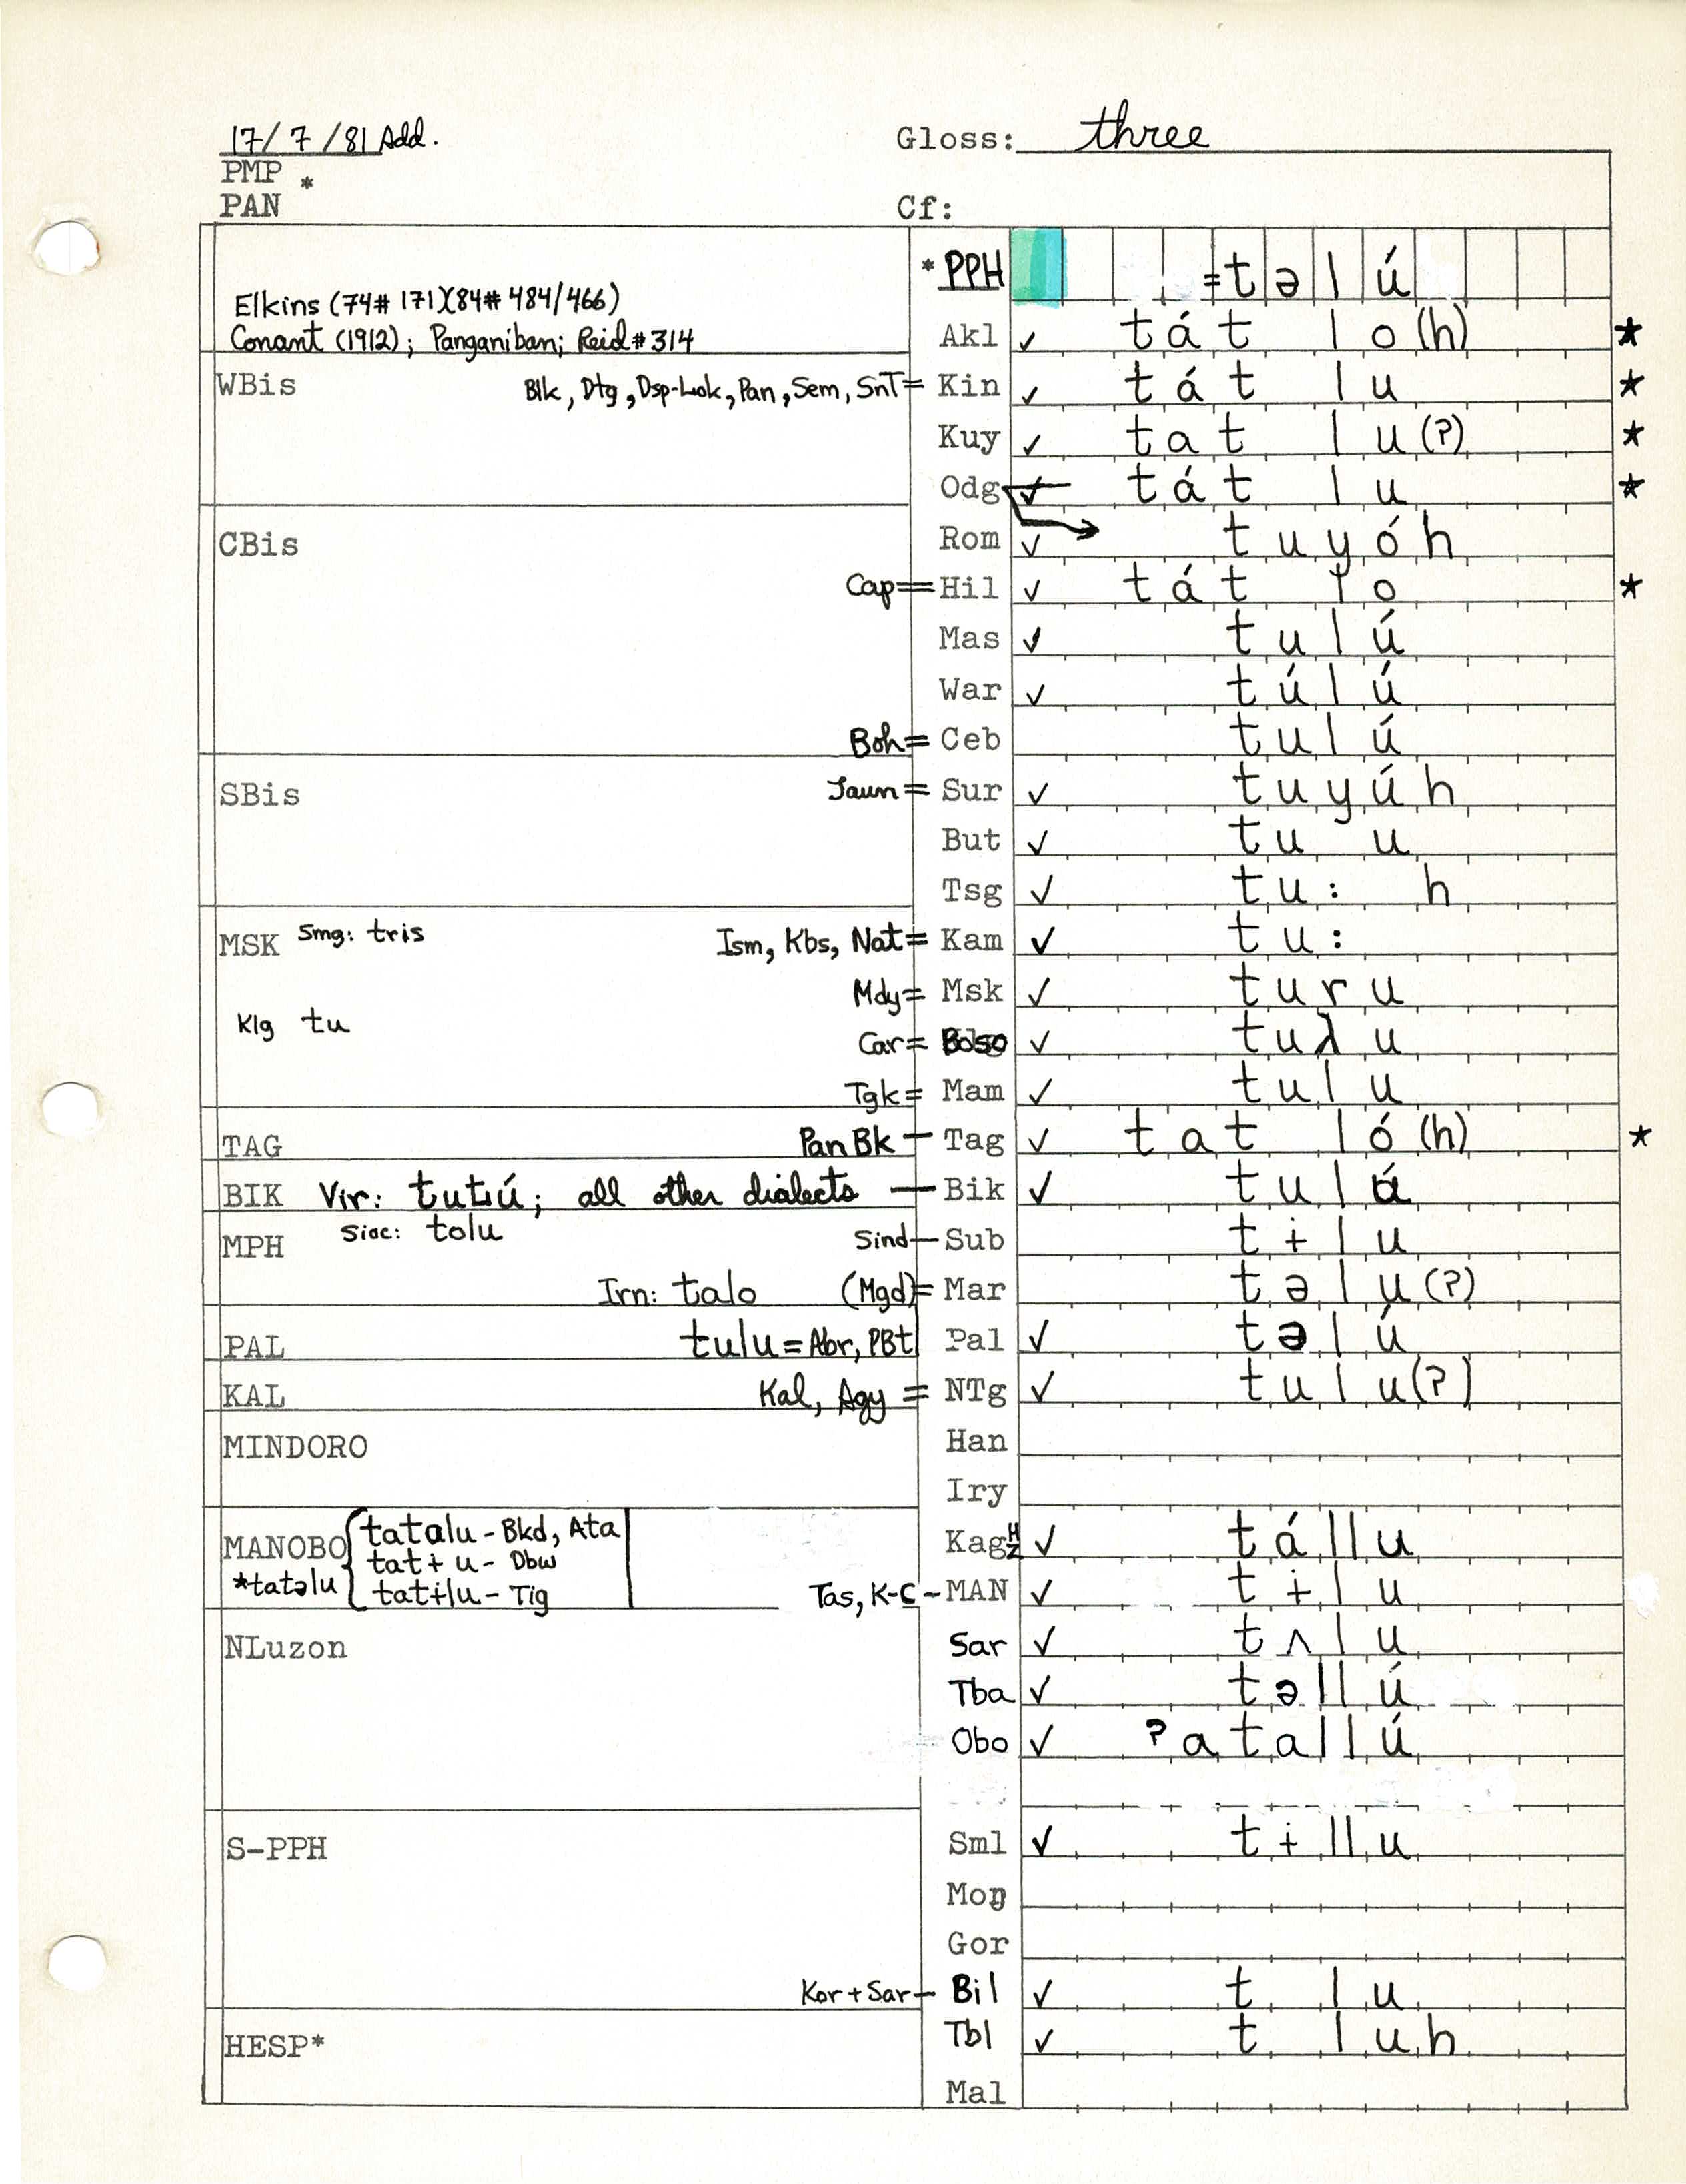 17/7/81 Add. Gloss: three
PMP *
PAN Cf:
*PPH =təlú
Elkins (74# 171)(84# 484/466)
Conant (1912); Panganiban; Reid #314 Akl ✓ tátlo(h) ★
WBis Blk, Dtg, Dsp-Lok, Pan, Sem, SnT= Kin ✓ tátlu ★
Kuy ✓ tatlu(ʔ) ★
Odg ✓ tátlu ★
CBis Rom ✓ tuyóh
Cap= Hil ✓ tátlo ★
Mas ✓ tulú
War ✓ túlú
Boh= Ceb tulú
SBis Jaun= Sur ✓ tuyúh
But ✓ tu u
Tsg ✓ tu: h
MSK Smg: tris Ism, Kbs, Nat= Kam ✓ tu:
Mdy= Msk ✓ turu
Klg tu
Car= Boso ✓ tuλu
Tgk= Mam ✓ tulu
TAG Pan Bk – Tag ✓ tatló(h) ★
BIK Vir: ; all other dialects — Bik ✓
MPH Sioc: tolu Sind – Sub tɨlu
Irn: talo (Mgd)= Mar təlu(ʔ)
PAL tulu = Abr, PBt Pal ✓ təlú
KAL Kal, Agy = NTg ✓ tulu(ʔ)
MINDORO Han
Iry
MANOBO tatalu - Bkd, Ata Kag ✓ tállu
tatɨ u - Dbw
*tatəlu tatɨlu - Tig Tas, K-C – MAN ✓ tɨlu
NLuzon Sar ✓ tʌlu
Tba ✓ təllú
Obo ✓ ʔatallú
S-PPH Sml ✓ tɨllu
Moŋ
Gor
Kor + Sar – Bil ✓ t lu
HESP* Tbl ✓ t luh
Mal